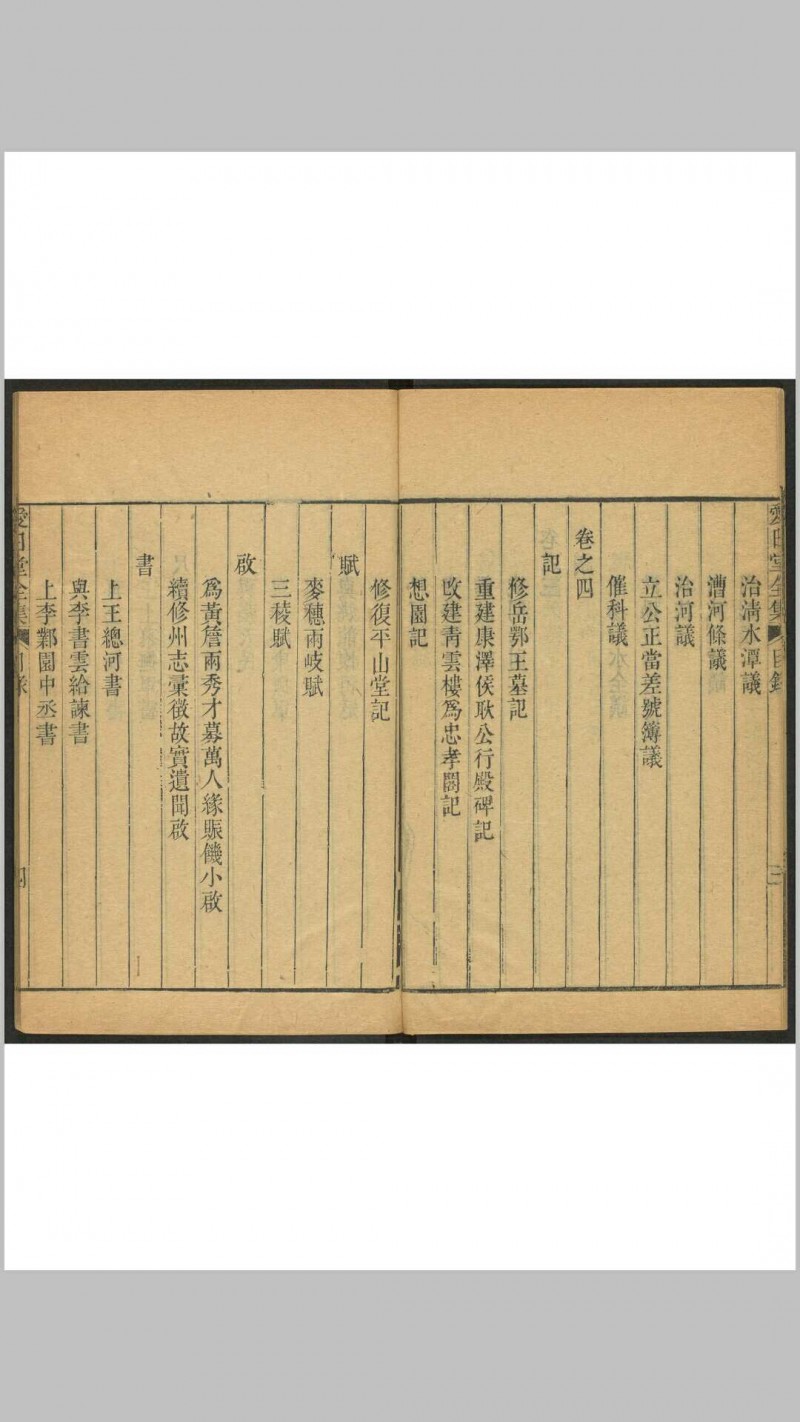 愛日堂全集 目錄 三
治清水潭議
漕河條議
治河議
立公正當差號簿議
催科議
卷之四
記
修岳鄂王墓記
重建康澤侯耿公行殿碑記
改建青雲樓為忠孝閣記
想園記
修復平山堂記
賦
麥穗兩岐賦
三稜賦
啟
為黃詹雨秀才募萬人緣賑饑小啟
續修州志彙徵故實遺聞啟
書
上王總河書
與李書雲給諫書
上李鄴園中丞書
愛日堂全集 目錄 四